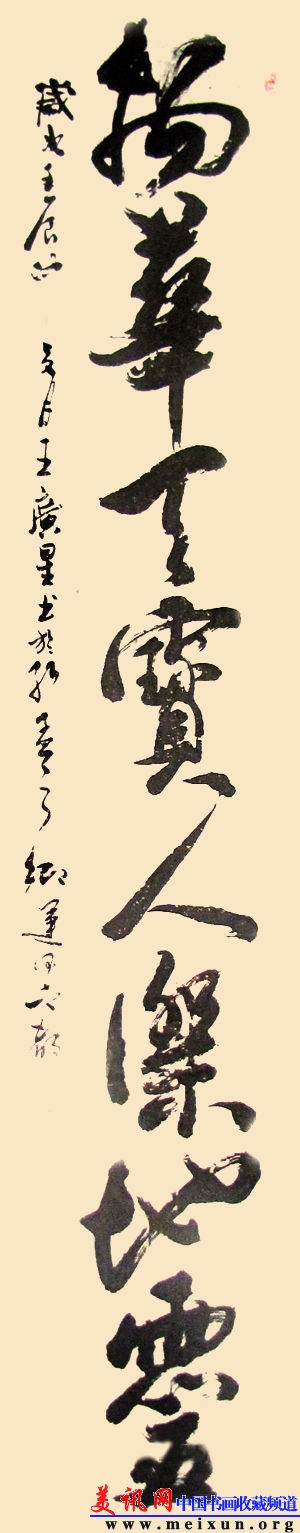 物華天寶人傑地靈
歲也壬辰
夏月王廣星書於孫
鄉運河
美讯网 中国书画收藏频道
www.meixun.org